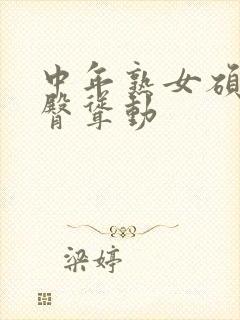 中年熟女硕
臀耸动
梁婷